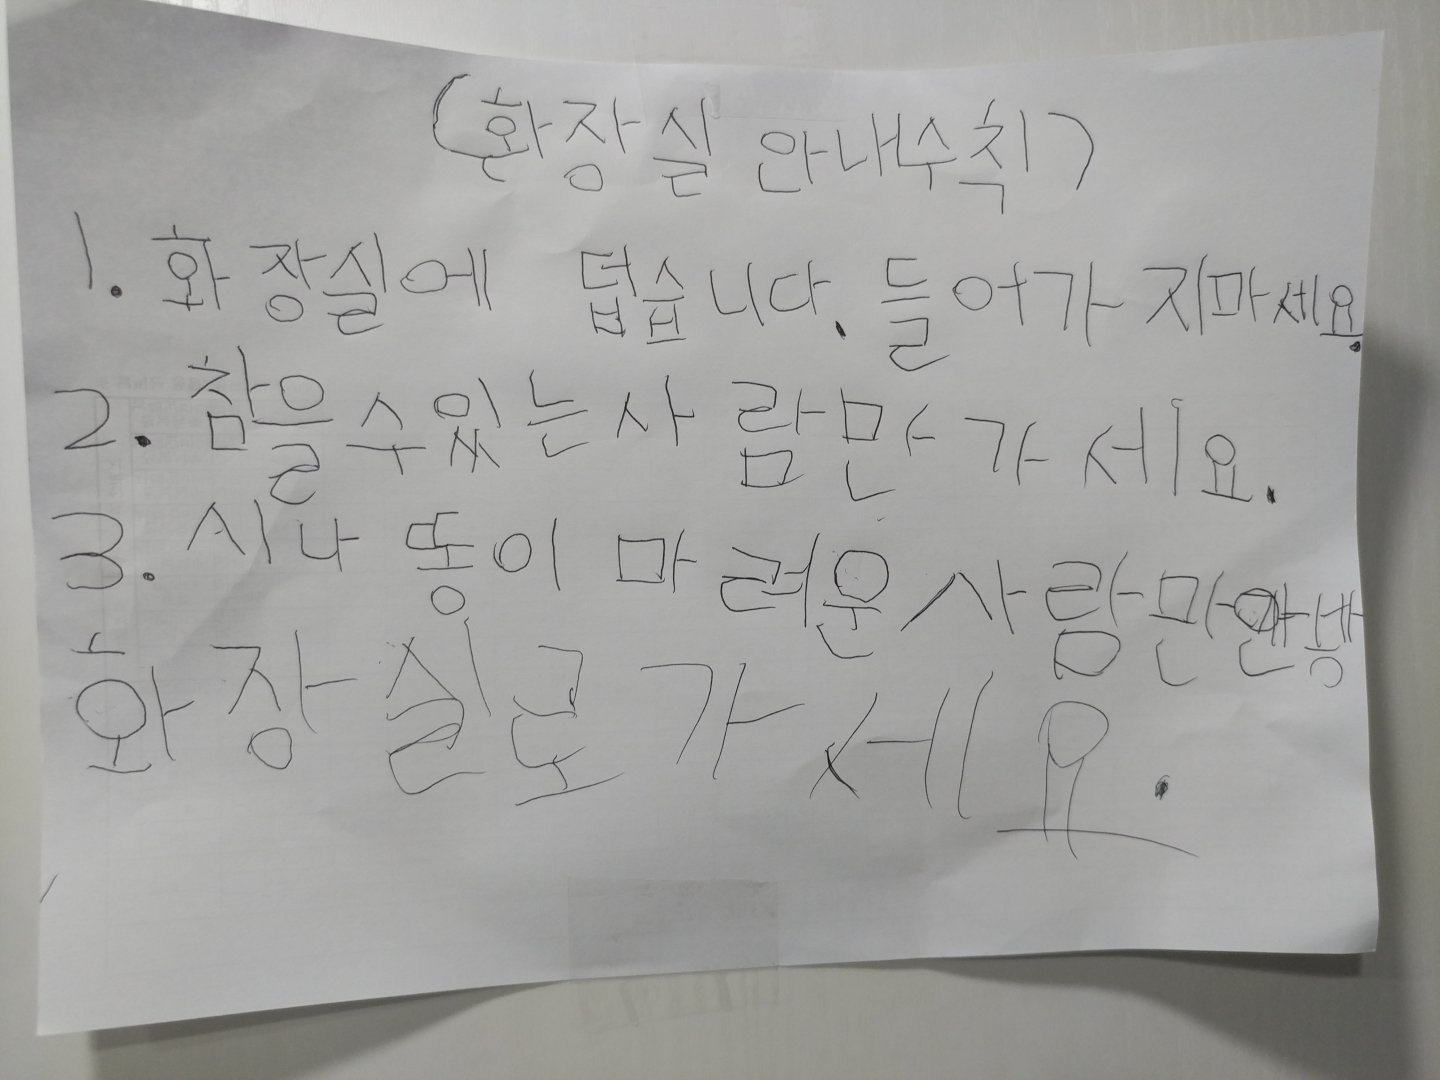 (환장실 안내수칙)
1. 화장실에 덥습니다. 들어가지마세요.
2. 참을수있는사람만가세요.
3. 시나 똥이 마려운사람만
환장실로가세요.